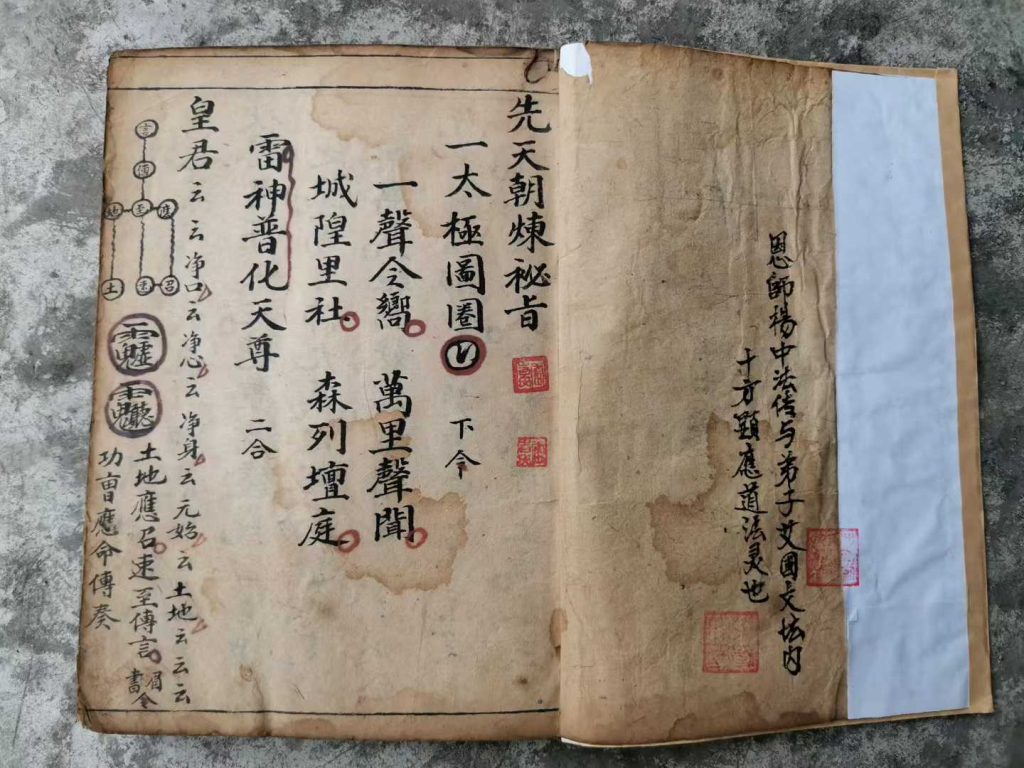 恩師楊中法传与弟子艾國文坛内
十方顕應道法灵也
先天朝煉祕旨
一太極圖圈 下令
一聲令嚮 萬里聲聞
城隍里社 森列壇庭
雷神普化天尊 二合
皇君云云净口云净心云净身云元始云土地云云云
言
傳
地 至 應
土 速 召
土地應召速至傳言
功曹應命傳奏